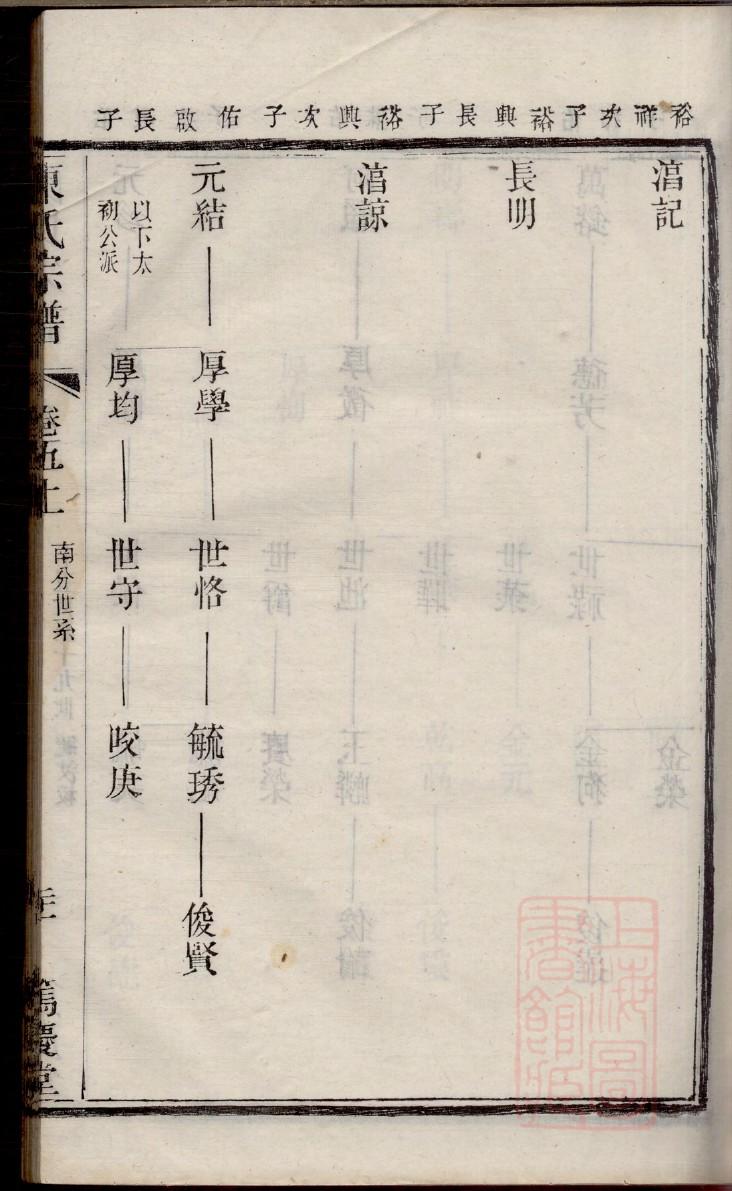 裕祥次子
裕興長子
裕興次子
佑啟長子
湻記
長明
湻諒
元結
厚學
世恪
毓琇
俊賢
以下太
初公派
厚均
世守
咬庚
陳氏宗譜
卷五上
南分世系
篤慶堂
上海圖
書館藏